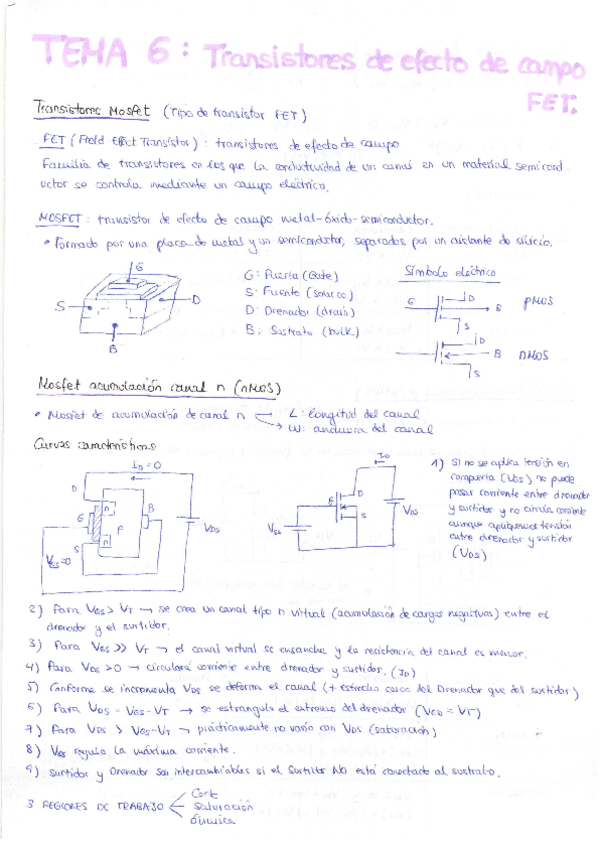 TEMA 6: Transistores de efecto de campo
FET.
Transistores Mosfet (Tipo de transistor FET)
FET (Field Effect Transistor): transistores de efecto de campo
Familia de transistores en los que la conductividad de un canal en un material semicond-
uctor se controla mediante un campo eléctrico.
MOSFET: transistor de efecto de campo metal-óxido-semiconductor.
• Formado por una placa de metal y un semiconductor, separados por un aislante de silicio.
G
S
D
B
G: Puerta (Gate)
S: Fuente (source)
D: Drenador (drain)
B: Sustrato (bulk)
Símbolo eléctrico
G
D
B
S
pMOS
D
B
S
nMOS
Mosfet acumulación canal n (nMOS)
• Mosfet de acumulación de canal n
L: longitud del canal
W: anchura del canal
Curvas características
ID = 0
D
G
S
n
n
P
B
VDS
VGS = 0
ID
D
G
S
VGS
VDS
1) Si no se aplica tensión en
compuerta (VGS) no puede
pasar corriente entre drenador
y surtidor y no circula corriente
aunque apliquemos tensión
entre drenador y surtidor
(VDS)
2) Para VGS > VT → se crea un canal tipo n virtual (acumulación de cargas negativas) entre el
drenador y el surtidor.
3) Para VGS >> VT → el canal virtual se ensancha y la resistencia del canal es menor.
4) Para VDS > 0 → circulará corriente entre drenador y surtidor. (ID)
5) Conforme se incrementa VDS se deforma el canal (+ estrecho cerca del Drenador que del surtidor)
6) Para VDS = VGS - VT → se estrangula el extremo del drenador (VGD = VT)
7) Para VDS > VGS - VT → prácticamente no varía con VDS (saturación)
8) VGS regula la máxima corriente.
9) Surtidor y Drenador son intercambiables si el Surtidor NO está conectado al sustrato.
3 REGIONES DE TRABAJO
Corte
Saturación
Óhmica